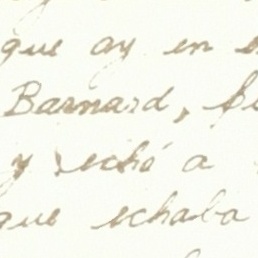 que ay en
Barnard,
y echó a
que echaba